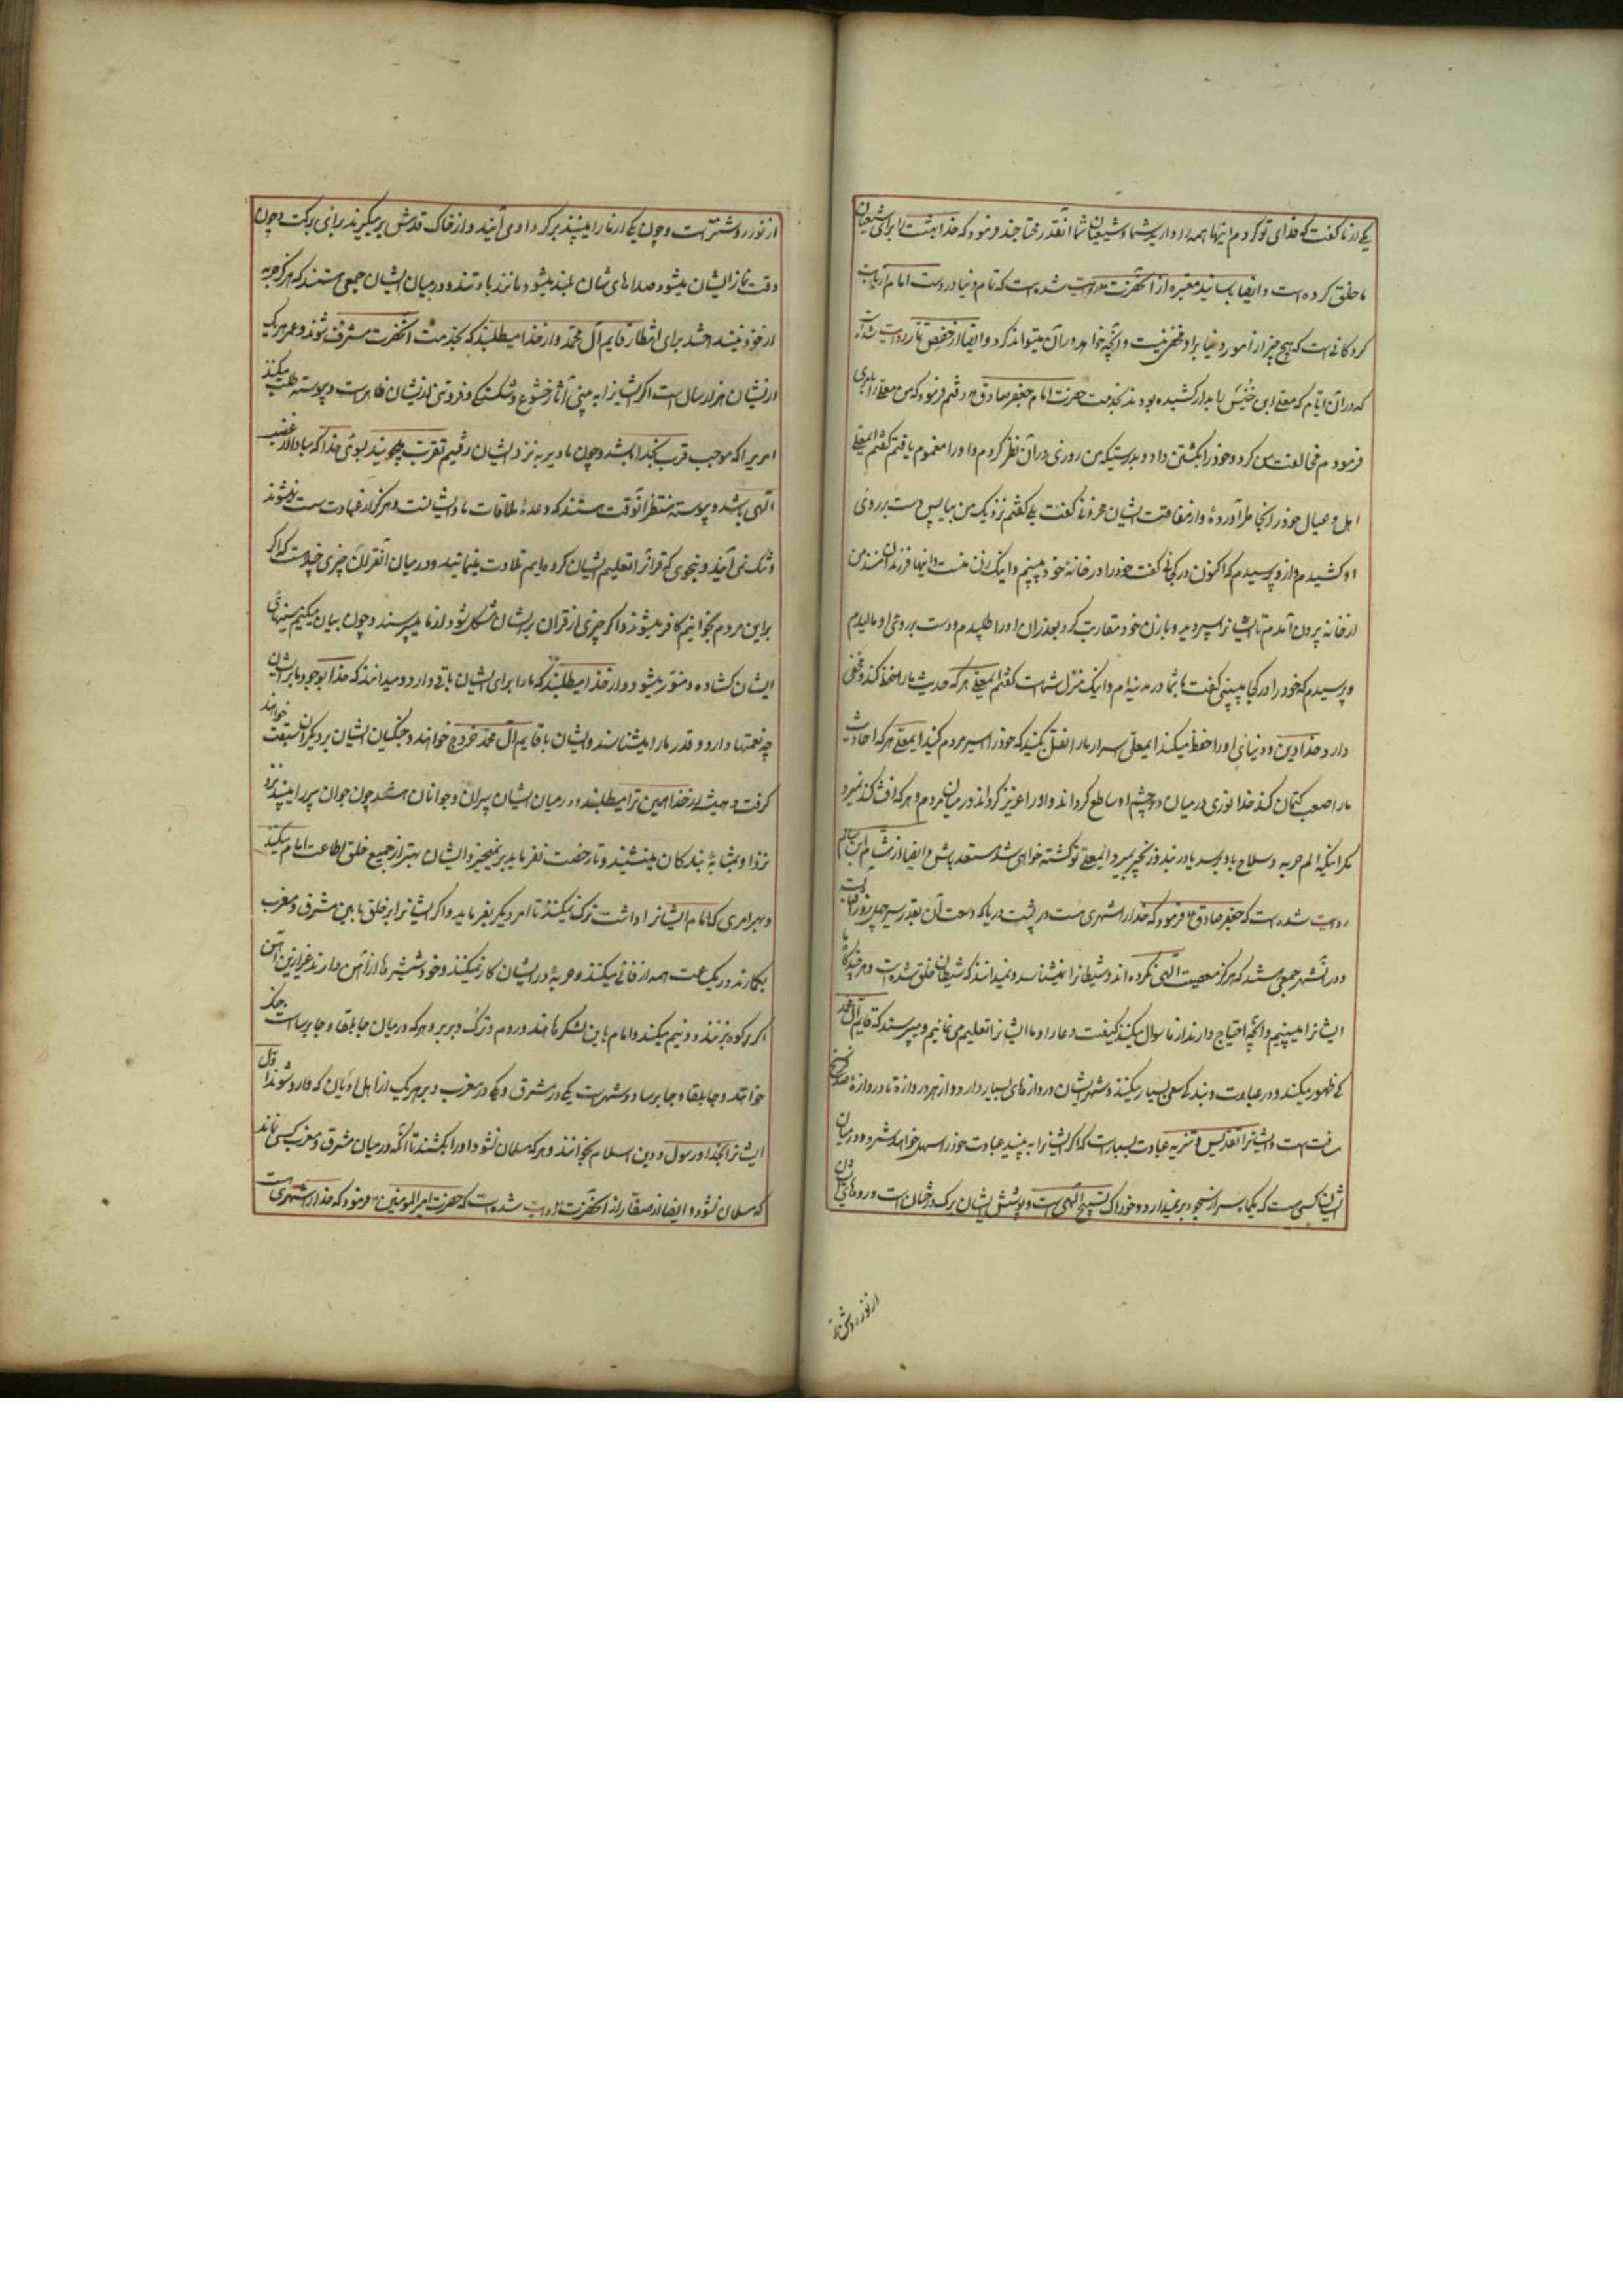 یکی از ما گفت که فدای تو کردم اینها همه را دارید شما و شیعیان شما آنقدر محتاجند فرمود که خدا بهشت را برای شیعیان
ما خلق کرده است و ایضا بسانید معتبره از آنحضرت روایت شده است که تمام دنیا در دست امام از بابت
گردکانی است که هیچ چیز از امور دنیا بر او مخفی نیست و آنچه خواهد در آن میتواند کرد و ایضا از حفص تمار روایت شده است
که در آن ایام که معلی ابن خنیس را بدار کشیده بودند بخدمت حضرت امام جعفر صادق رفتم فرمود که من معلی را بامری
فرمودم مخالفت من کرد و خود را بکشتن داد و بدرستیکه من روزی در آن نظر کردم و او را مغموم یافتم گفتم ایمعلی
اهل و عیال خود را بخاطر آورده و از مفارقت ایشان محزونی گفت بلی گفتم نزدیک من بیا پس دست بر روی
او کشیدم و از او پرسیدم که اکنون در کجائی گفت خود را در خانه خود میبینم و اینک زن منست و اینها فرزندان منند من
از خانه بیرون آمدم تا ایشانرا سیر دید و با زن خود مقاربت کرد بعد از آن او را طلبیدم و دست بر روی او مالیدم
و پرسیدم که خود را در کجا میبینی گفت با شما در مدینه ام و اینک منزل شماست گفتم ایمعلی هر که حدیث ما را حفظ کند و مخفی
دارد خدا دین و دنیای او را حفظ میکند ایمعلی اسرار ما را نقل مکنید که خود را اسیر مردم کنید ایمعلی هر که احادیث
ما را صعب کتمان کند خدا نوری در میان دو چشم او ساطع گرداند و او را عزیز گرداند در میان مردم و هر که افشا کند نمیرد
مگر اینکه الم حربه و سلاح باو برسد یا در بند و زنجیر بمیرد ایمعلی تو کشته خواهی شد مستعد باش و ایضا از هشام ابن سالم
روایت شده است که جعفر صادق فرمود که خدا را شهری هست در پشت دریا که وسعت آن بقدر سیر چهل روز آفتاب است
و در آنشهر جمعی هستند که هرگز معصیت الهی نکرده اند و شیطانرا نمیشناسند و نمیدانند که شیطان خلق شده است و هر چند گاه ما
ایشانرا میبینیم و آنچه احتیاج دارند از ما سوال میکنند کیفیت دعا را و ما ایشانرا تعلیم می نمائیم و میپرسند که قایم آل محمد
کی ظهور میکند و در عبادت و بندگی سعی بسیار میکنند و شهر ایشان دروازهای بسیار دارد و از هر دروازه تا دروازه صد فرسخ
مسافت است و ایشانرا تقدیس و تنزیه و عبادت بسیار است که اگر ایشانرا به بینید عبادت خود را سهل خواهید شمرد و در میان
ایشان کسی هست که یکماه سر از سجود بر نمیدارد و خوراک ایشان تسبیح الهی است و پوشش ایشان برگ درختان است و روهای ایشان
از نور روشن تر
از نور روشنتر است و چون یکی از ما را میبینند بر گرد او می آیند و از خاک قدمش برمیگیرند برای برکت و چون
وقت نماز ایشان میشود صداهای شان بلند میشود مانند باد تند و در میان ایشان جمعی هستند که هرگز حربه
از خود نینداخته اند برای انتظار قایم آل محمد و از خدا میطلبند که بخدمت آنحضرت مشرف شوند و عمر هر یک
از ایشان هزار سال است اگر ایشانرا به بینی آثار خشوع و شکستگی و فروتنی از ایشان ظاهر است و پیوسته طلب میکنند
امریرا که موجب قرب بخدا باشد و چون ما دیر به نزد ایشان رفتیم تقرب میجویند بسوی خدا که مبادا از غضب
الهی باشد و پیوسته منتظر آنوقت هستند که وعدۀ ملاقات ما و ایشانست و هرگز از عبادت سست نمیشوند
و تنگ نمی آیند و بنحوی که قرانرا تعلیم ایشان کرده ایم تلاوت مینمایند و در میان آنقران چیزی چند هست که اگر
بر این مردم بخوانیم کافر میشوند و اگر چیزی از قران بر ایشان مشکل شود از ما میپرسند و چون بیان میکنیم سینهای
ایشان گشاده و منور میشود و از خدا میطلبند که ما را برای ایشان باقی دارد و میدانند که خدا بوجود ما بر ایشان
چه نعمتها دارد و قدر ما را میشناسند و ایشان با قایم آل محمد خروج خواهند کرد و جنگیان ایشان بر دیگران سبقت خواهند
گرفت و همیشه از خدا همین را میطلبند و در میان ایشان پیران و جوانان هستند چون جوان پیر را میبیند نزد
نزد او بمثابۀ بندگان مینشیند و تا رخصت نفرماید برنمیخیزد و ایشان بهتر از جمیع خلق اطاعت امام میکنند
و بهر امری که امام ایشانرا داشت ترک نمیکنند تا امر دیگر بفرماید و اگر ایشانرا بر خلق ما بین مشرق و مغرب
بگمارند در یکساعت همه را فانی میکنند و حربه در ایشان کار نمیکند و خود شمشیرها از آهن دارند غیر از این آهن
اگر بر کوه بزنند دو نیم میکند و امام باین لشکر با هند و روم و ترک و بربر و هر که در میان جابلقا و جابرساست جنگ
خواهند و جابلقا و جابرسا دو شهر است یکی در مشرق و یکی در مغرب و بر هر یک از اهل ادیان که وارد شوند اول
ایشانرا بخدا و رسول و دین اسلام بخوانند و هر که مسلمان نشود او را بکشند تا آنکه در میان مشرق و مغرب کسی نماند
که مسلمان نشود و ایضا از صفار از آنحضرت روایت شده است که حضرت امیر المومنین فرمود که خدا را شهری است